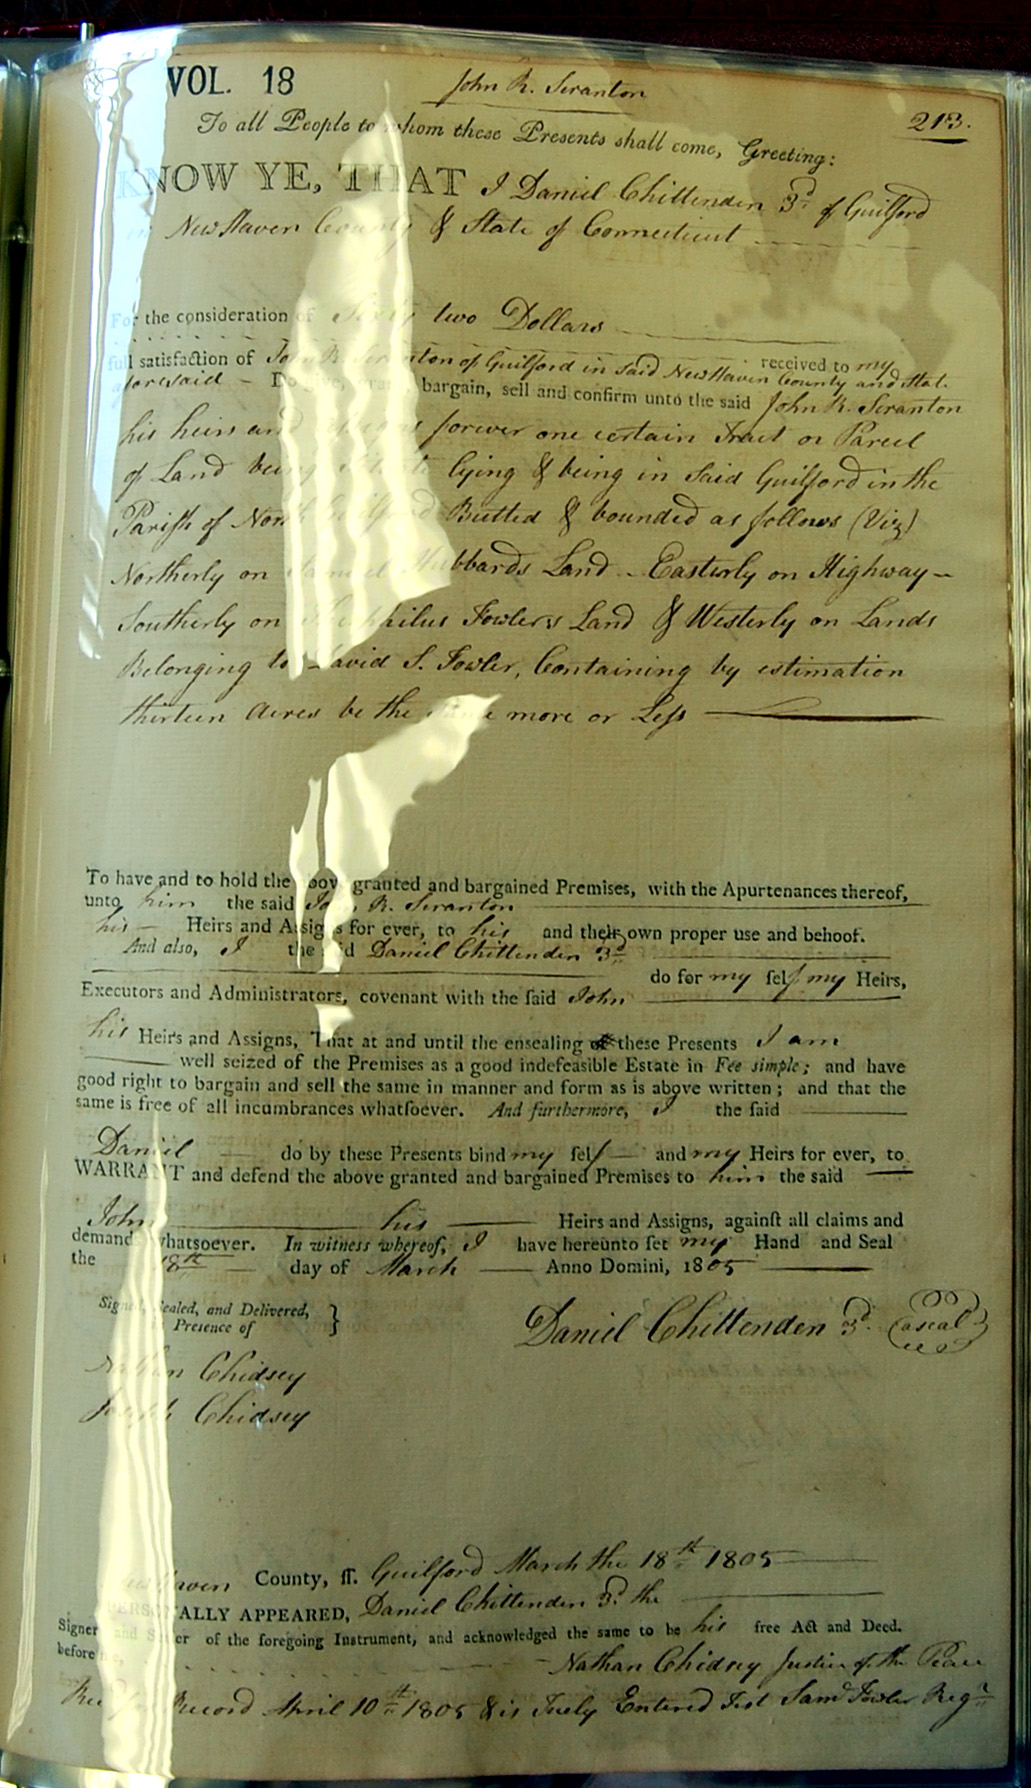 VOL. 18
John R. Scranton
213.
To all People to whom these Presents shall come, Greeting:
KNOW YE, THAT I Daniel Chittenden 3d of Guilford
in New Haven County & State of Connecticut
For the consideration of Sixty two Dollars
received to my
full satisfaction of John R. Scranton of Guilford in said New Haven County and Stat.
aforesaid - Do give, grant, bargain, sell and confirm unto the said John R. Scranton
his heirs and assigns forever one certain Tract or Parcel
of Land being Situate lying & being in said Guilford in the
Parish of North Guilford Butted & bounded as follows (Viz)
Northerly on Samuel Hubbards Land - Easterly on Highway -
Southerly on Theophilus Fowlers Land & Westerly on Lands
Belonging to David S. Fowler, Containing by estimation
thirteen Acres be the same more or Less
To have and to hold the above granted and bargained Premises, with the Apurtenances thereof,
unto him the said John R. Scranton
his - Heirs and Assigns for ever, to his and their own proper use and behoof.
And also, I the said Daniel Chittenden 3d
do for my self my Heirs,
Executors and Administrators, covenant with the said John
his Heirs and Assigns, That at and until the ensealing of these Presents I am
well seized of the Premises as a good indefeasible Estate in Fee simple; and have
good right to bargain and sell the same in manner and form as is above written; and that the
same is free of all incumbrances whatsoever. And furthermore, I the said
Daniel do by these Presents bind my self - and my Heirs for ever, to
WARRANT and defend the above granted and bargained Premises to him the said
John his Heirs and Assigns, against all claims and
demand whatsoever. In witness whereof, I have hereunto set my Hand and Seal
the 18th day of March Anno Domini, 1805
Signed, Sealed, and Delivered, }
in Presence of
Daniel Chittenden 3d. (a seal)
Nathan Chidsey
Joseph Chidsey
New Haven County, ss. Guilford March the 18th 1805
PERSONALLY APPEARED, Daniel Chittenden 3d. the
Signer and Sealer of the foregoing Instrument, and acknowledged the same to be his free Act and Deed.
before me,
Nathan Chidsey Justice of the Peace
Record April 10th 1805 & is Truly Entered Test Saml Fowler Regr